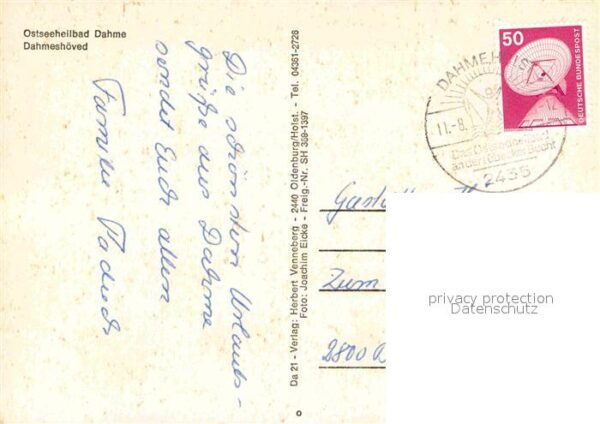 Ostseeheilbad Dahme
Dahmeshöved
Die schönsten Urlaubs-
grüße aus Dahme
sendet Euch allen
Familie
Da 21 - Verlag: Herbert Venneberg - 2440 Oldenburg/Holst. - Tel. 04361-2726
Foto: Joachim Eicke - Freig.-Nr. SH 359-1397
50
DEUTSCHE BUNDESPOST
DAHME
11.-8.
2435
Zum
2800
privacy protection
Datenschutz